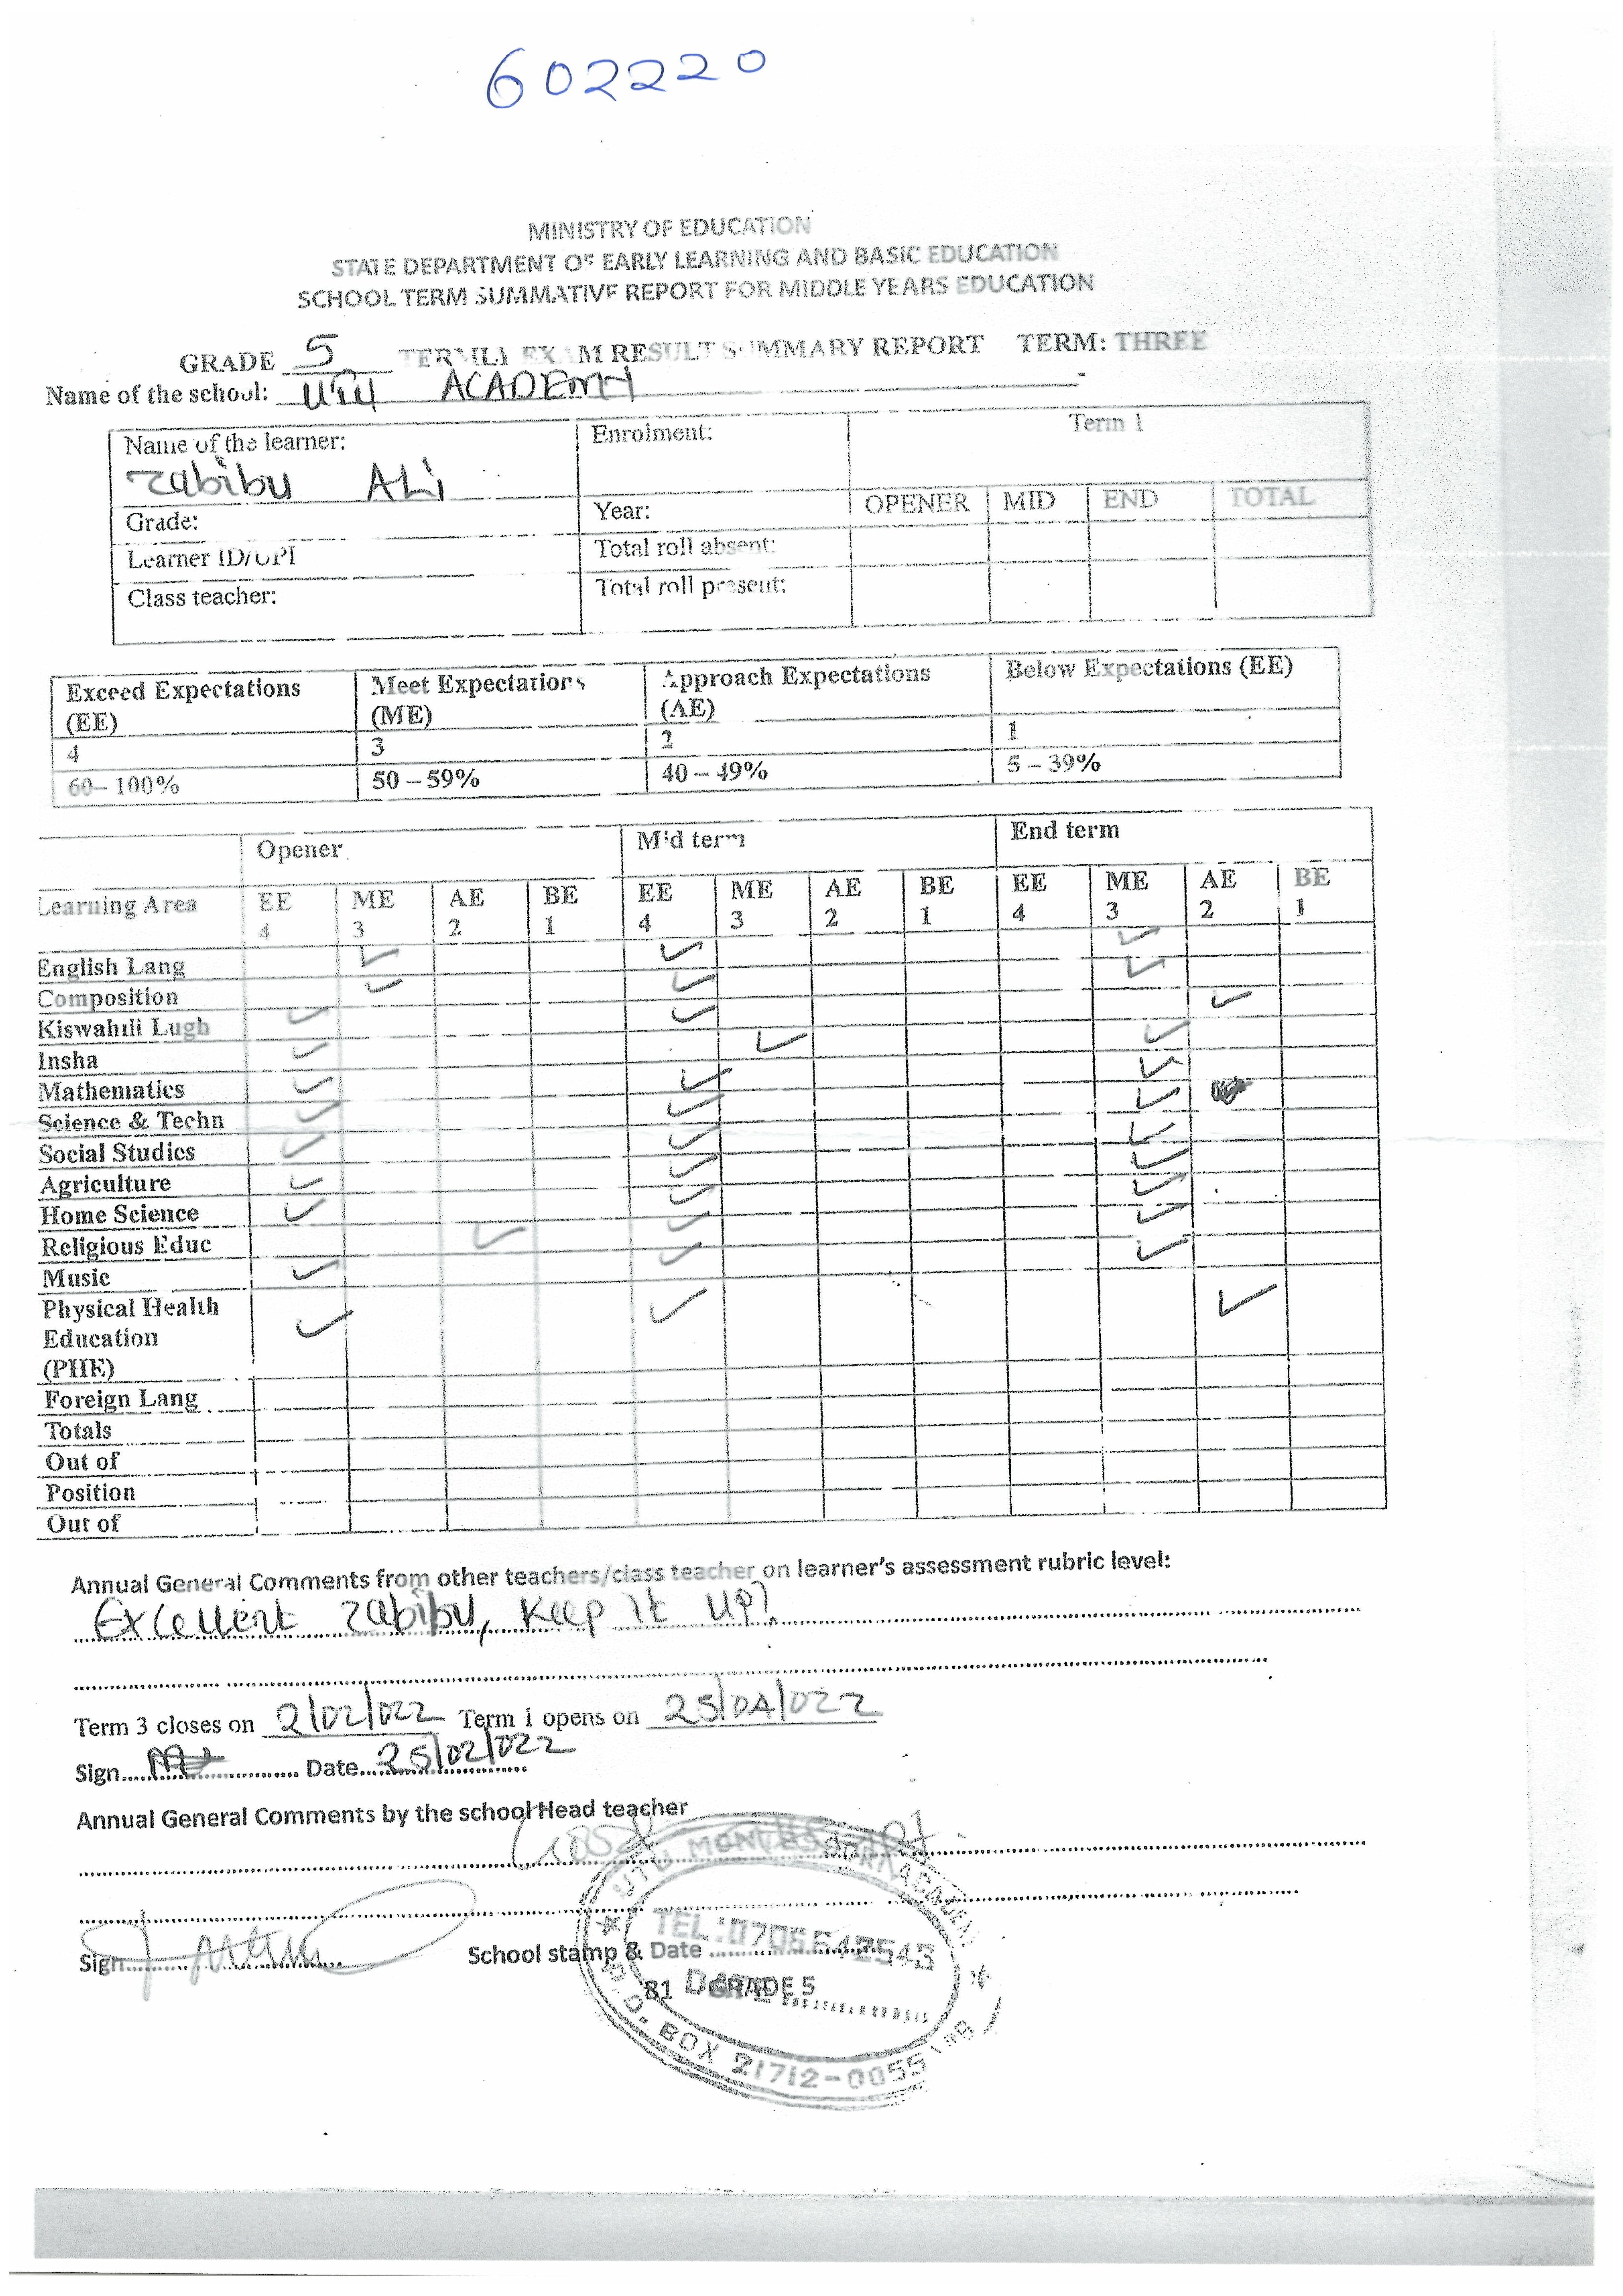 602220
MINISTRY OF EDUCATION
STATE DEPARTMENT OF EARLY LEARNING AND BASIC EDUCATION
SCHOOL TERM SUMMATIVE REPORT FOR MIDDLE YEARS EDUCATION
GRADE 5 TERMLY EXAM RESULT SUMMARY REPORT TERM: THREE
Name of the school: ACADEMY
Name of the learner: Enrolment: Term 1
Zabibu ALi
Grade: Year: OPENER MID END TOTAL
Learner ID/UPI Total roll absent:
Class teacher: Total roll present:
Exceed Expectations Meet Expectations Approach Expectations Below Expectations (EE)
(EE) (ME) (AE)
4 3 2 1
60– 100% 50 – 59% 40 – 49% 5 – 39%
Opener Mid term End term
Learning Area EE ME AE BE EE ME AE BE EE ME AE BE
4 3 2 1 4 3 2 1 4 3 2 1
English Lang ✓ ✓ ✓
Composition ✓ ✓ ✓
Kiswahili Lugh ✓ ✓ ✓
Insha ✓ ✓ ✓
Mathematics ✓ ✓ ✓
Science & Techn ✓ ✓ ✓
Social Studies ✓ ✓ ✓
Agriculture ✓ ✓ ✓
Home Science ✓ ✓ ✓
Religious Educ ✓ ✓ ✓
Music ✓ ✓ ✓
Physical Health ✓ ✓ ✓
Education
(PHE)
Foreign Lang
Totals
Out of
Position
Out of
Annual General Comments from other teachers/class teacher on learner's assessment rubric level:
Excellent Zabibu, Keep it up!
Term 3 closes on 2/02/022 Term 1 opens on 25/04/022
Sign Date 25/02/022
Annual General Comments by the school Head teacher
Sign School stamp & Date
81 GRADE 5
UTU MONTESSORI ACADEMY
TEL:0706642543
DATE
P.O. BOX 21712-00551